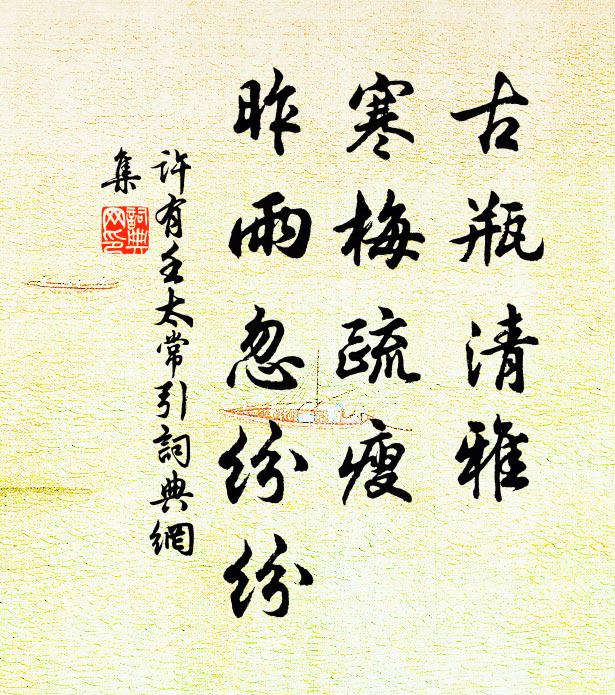 古瓶清雅
寒梅疏瘦
昨雨忽纷纷
许有壬太常引詞典網
集
詞典
网印